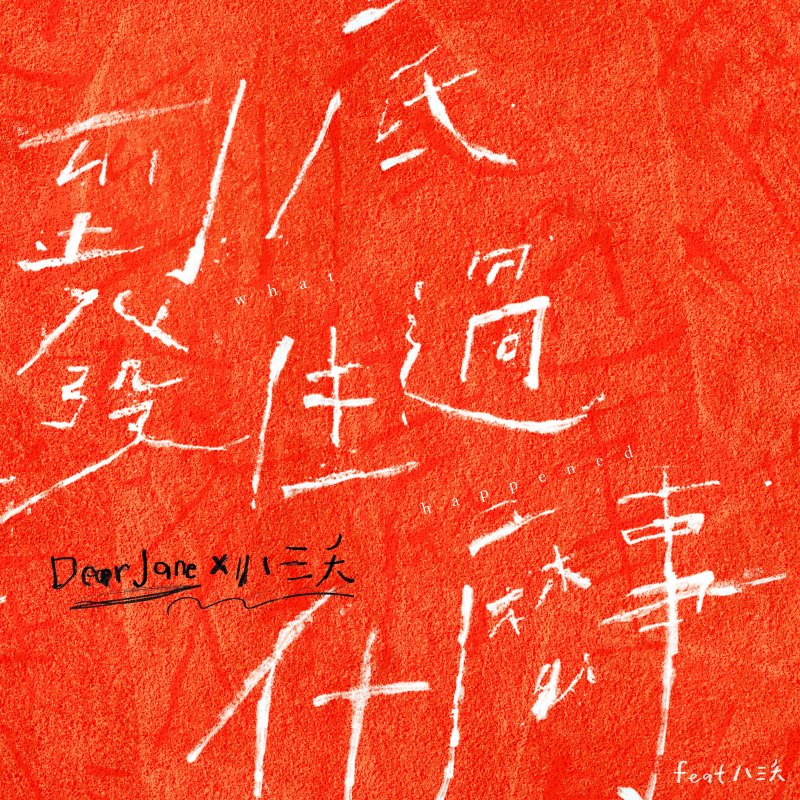 到底
what
發生過
happened
什麼事
Dear Jane x 八三夭
feat 八三夭